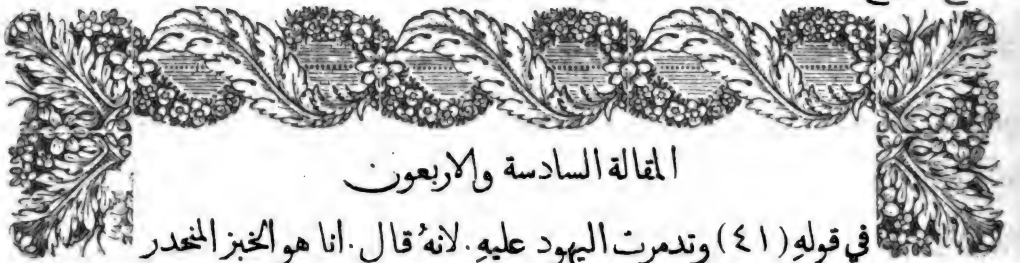 المقالة السادسة والاربعون
في قولهِ (٤١) وتدمرت اليهود عليهِ. لانهُ قال. انا هو الخبز المنحدر